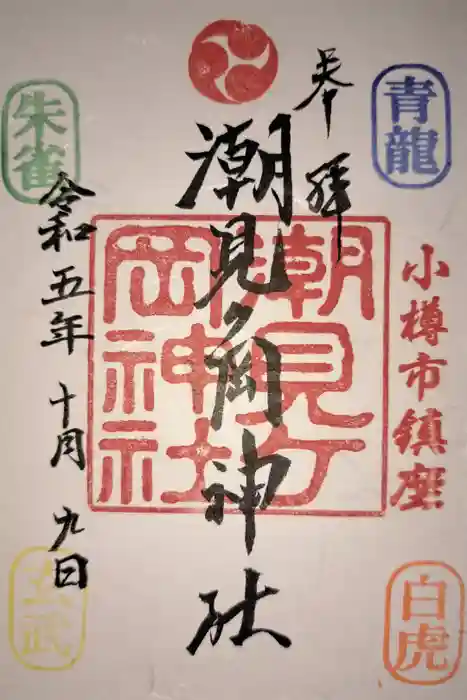 奉拝
潮見ヶ岡神社
令和五年十月九日
小樽市鎮座
潮見ヶ岡神社
青龍
朱雀
白虎
玄武